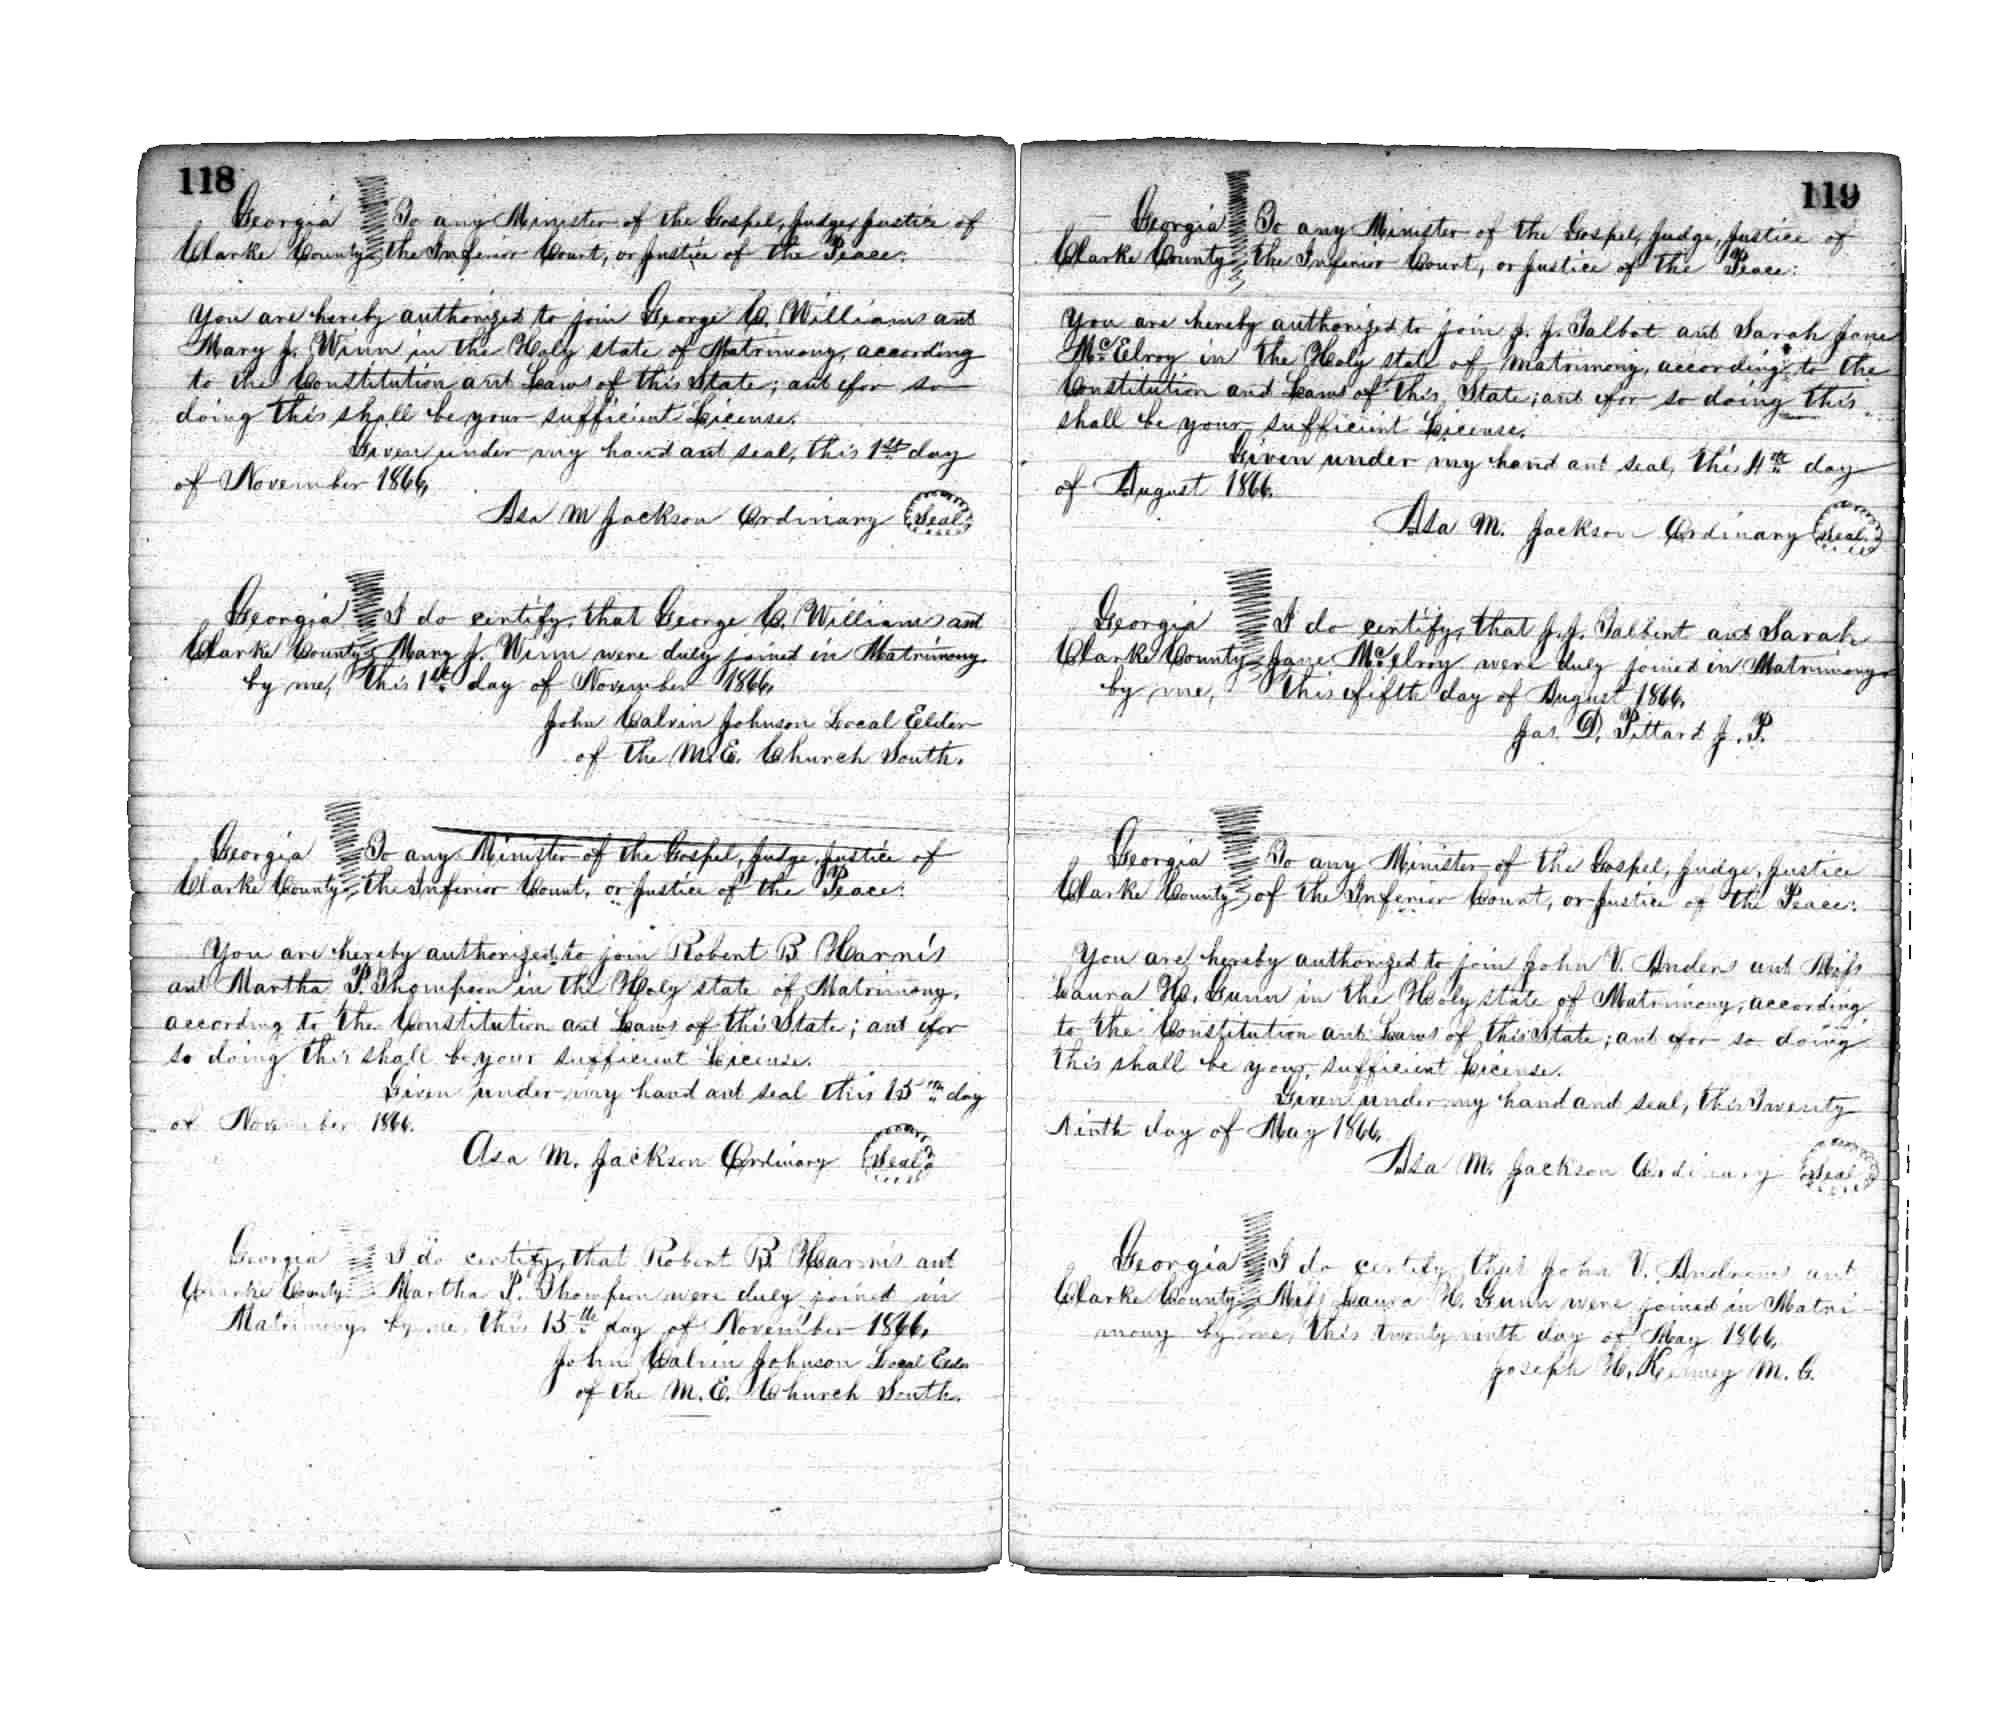 118
Georgia To any Minister of the Gospel, Judge, Justice of
Clarke County the Inferior Court, or Justice of the Peace:
You are hereby authorized to join George C. Williams and
Mary J. Winn in the Holy state of Matrimony, according
to the Constitution and Laws of this State; and for so
doing this shall be your sufficient License.
Given under my hand and seal, this 1st day
of November 1866,
Asa M Jackson Ordinary Seal
Georgia I do certify, that George C. Williams and
Clarke County Mary J. Winn were duly joined in Matrimony
by me, this 1st day of November 1866,
John Calvin Johnson Local Elder
of the M.E. Church South.
Georgia To any Minister of the Gospel, Judge, Justice of
Clarke County the Inferior Court, or Justice of the Peace:
You are hereby authorized to join Robert B Harris
and Martha P. Thompson in the Holy state of Matrimony,
according to the Constitution and Laws of this State; and for
so doing this shall be your sufficient License.
Given under my hand and seal this 15th day
of November 1866.
Asa M. Jackson Ordinary Seal
Georgia I do certify, that Robert B. Harris and
Clarke County Martha P. Thompson were duly joined in
Matrimony, by me, this 15th day of November 1866,
John Calvin Johnson Local Elder
of the M.E. Church South.
119
Georgia To any Minister of the Gospel, Judge, Justice of
Clarke County the Inferior Court, or Justice of the Peace:
You are hereby authorized to join J. J. Talbot and Sarah Jane
McElroy in the Holy state of Matrimony, according to the
Constitution and Laws of this State; and for so doing this
shall be your sufficient License.
Given under my hand and seal, this 4th day
of August 1866.
Asa M. Jackson Ordinary Seal
Georgia I do certify, that J. J. Talbert and Sarah
Clarke County Jane McElroy were duly joined in Matrimony
by me, this fifth day of August 1866,
Jas. D. Pittard J. P.
Georgia To any Minister of the Gospel, Judge, Justice
Clarke County of the Inferior Court, or Justice of the Peace:
You are hereby authorized to join John V. Anders and Miss
Laura H. Gunn in the Holy state of Matrimony, according
to the Constitution and Laws of this State; and for so doing
this shall be your sufficient License.
Given under my hand and seal, this Twenty
Ninth day of May 1866,
Asa M. Jackson Ordinary Seal
Georgia I do certify that John V. Andrews and
Clarke County Miss Laura H. Gunn were joined in Matri-
mony by me, this twenty ninth day of May 1866,
Joseph H. M. G.